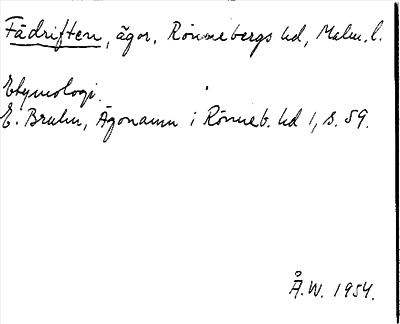 Fädriften, ägor, Rönnebergs hd, Malm. l.
Etymologi.
E. Bruhn, Ägonamn i Rönneb. hd 1, s. 59.
Å.W. 1954.